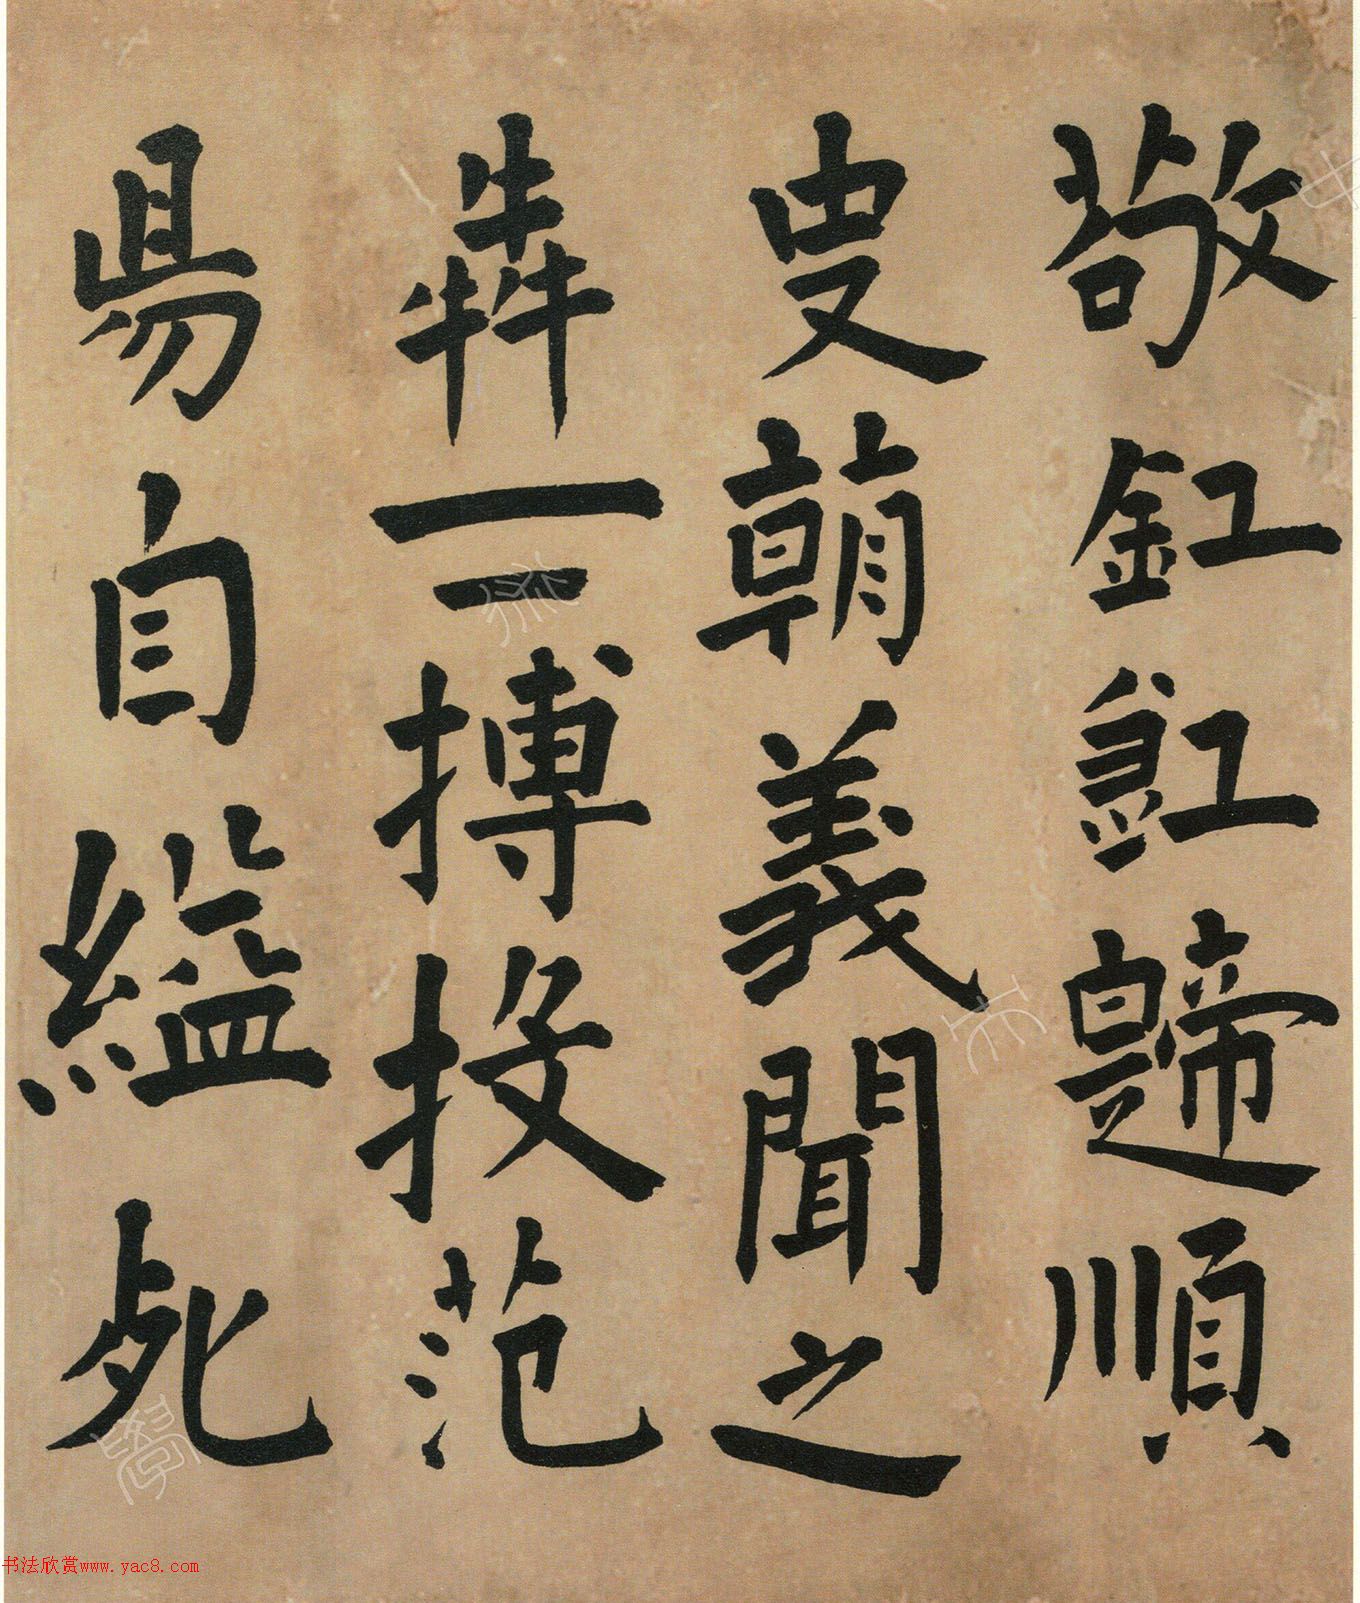 敬釭順
叟朝義聞之
犇一二搏投范
昜自縊死
书法欣赏www.yac8.com